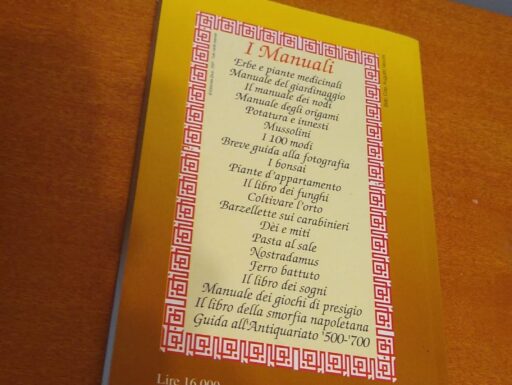 I Manuali
Erbe e piante medicinali
Manuale del giardinaggio
Il manuale dei nodi
Manuale degli origami
Potatura e innesti
Mussolini
I 100 modi
Breve guida alla fotografia
I bonsai
Piante d'appartamento
Il libro dei funghi
Coltivare l'orto
Barzellette sui carabinieri
Dèi e miti
Pasta al sale
Nostradamus
Ferro battuto
Il libro dei sogni
Manuale dei giochi di presigio
Il libro della smorfia napoletana
Guida all'Antiquariato '500-'700
Lire 16.000